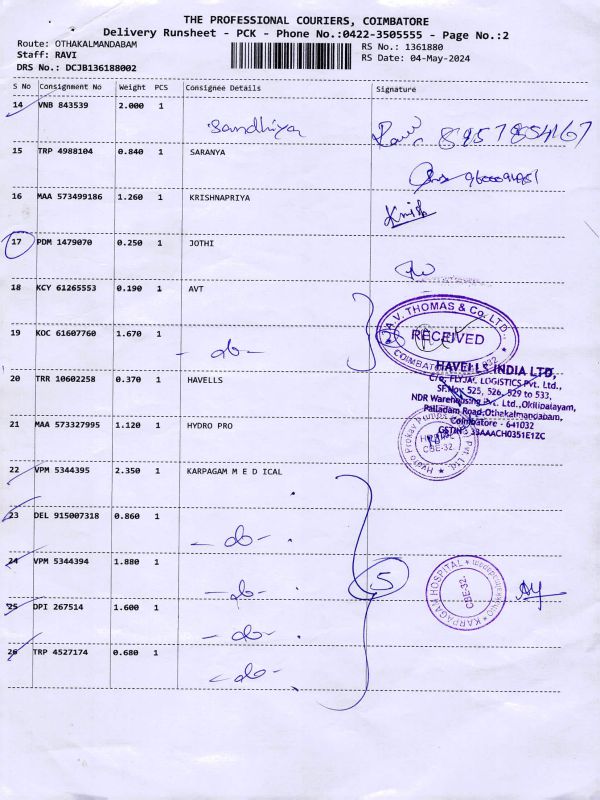 THE PROFESSIONAL COURIERS, COIMBATORE
Delivery Runsheet - PCK - Phone No.:0422-3505555 - Page No.:2
Route: OTHAKALMANDABAM
RS No.: 1361880
Staff: RAVI
RS Date: 04-May-2024
DRS No.: DCJB136188002
S No Consignment No Weight PCS Consignee Details Signature
14 VNB 843539 2.000 1
Sandhiya
15 TRP 4988104 0.840 1 SARANYA
16 MAA 573499186 1.260 1 KRISHNAPRIYA
17 PDM 1479070 0.250 1 JOTHI
18 KCY 61265553 0.190 1 AVT
A V. THOMAS & Co. LTD.
RECEIVED
19 KOC 61607760 1.670 1
- do -
20 TRR 10602258 0.370 1 HAVELLS
HAVELLS INDIA LTD,
C/o. FLYJAC LOGISTICS Pvt. Ltd.,
SF.Nos. 525, 526, 529 to 533,
NDR Warehousing Pvt. Ltd., Okilipalayam,
Palladam Road, Othakalmandabam,
Coimbatore - 641032
21 MAA 573327995 1.120 1 HYDRO PRO
CBE-32
22 VPM 5344395 2.350 1 KARPAGAM M E D ICAL
23 DEL 915007318 0.860 1
- do -
24 VPM 5344394 1.880 1
- do -
5
KARPAGAM HOSPITAL
CBE-32
25 DPI 267514 1.600 1
- do -
26 TRP 4527174 0.680 1
- do -